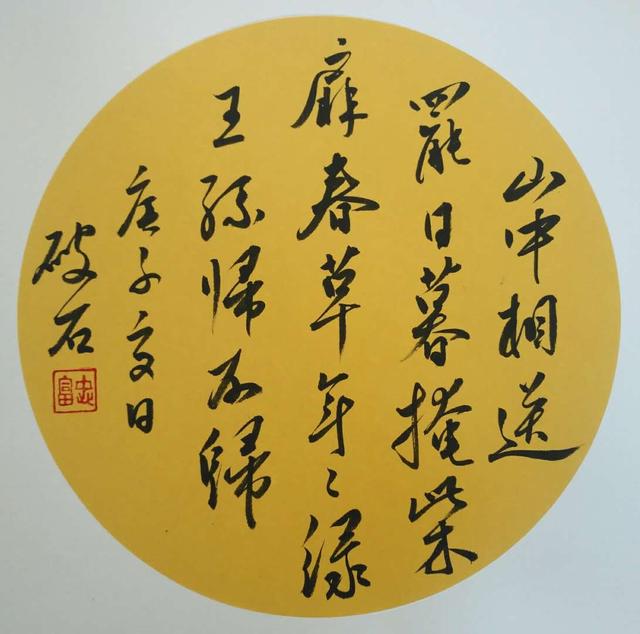 山中相送
罷日暮掩柴
扉春草年〻緑
王孫歸不歸
庚子夏日
破石
忠富